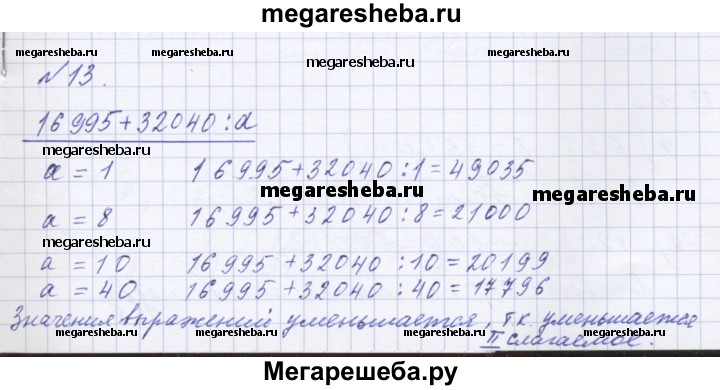 megaresheba.ru
megaresheba.ru megaresheba.ru megaresheba.ru
№13.
16995+32040:a
megaresheba.ru
a = 1 16995+32040:1=49035
megaresheba.ru megaresheba.ru
a = 8 16995+32040:8=21000
megaresheba.ru
a = 10 16995+32040:10=20199
a = 40 16995+32040:40=17796
Значения выражений уменьшается, т.к. уменьшается
II слагаемое.
megaresheba.ru megaresheba.ru megaresheba.ru
Мегарешеба.ру